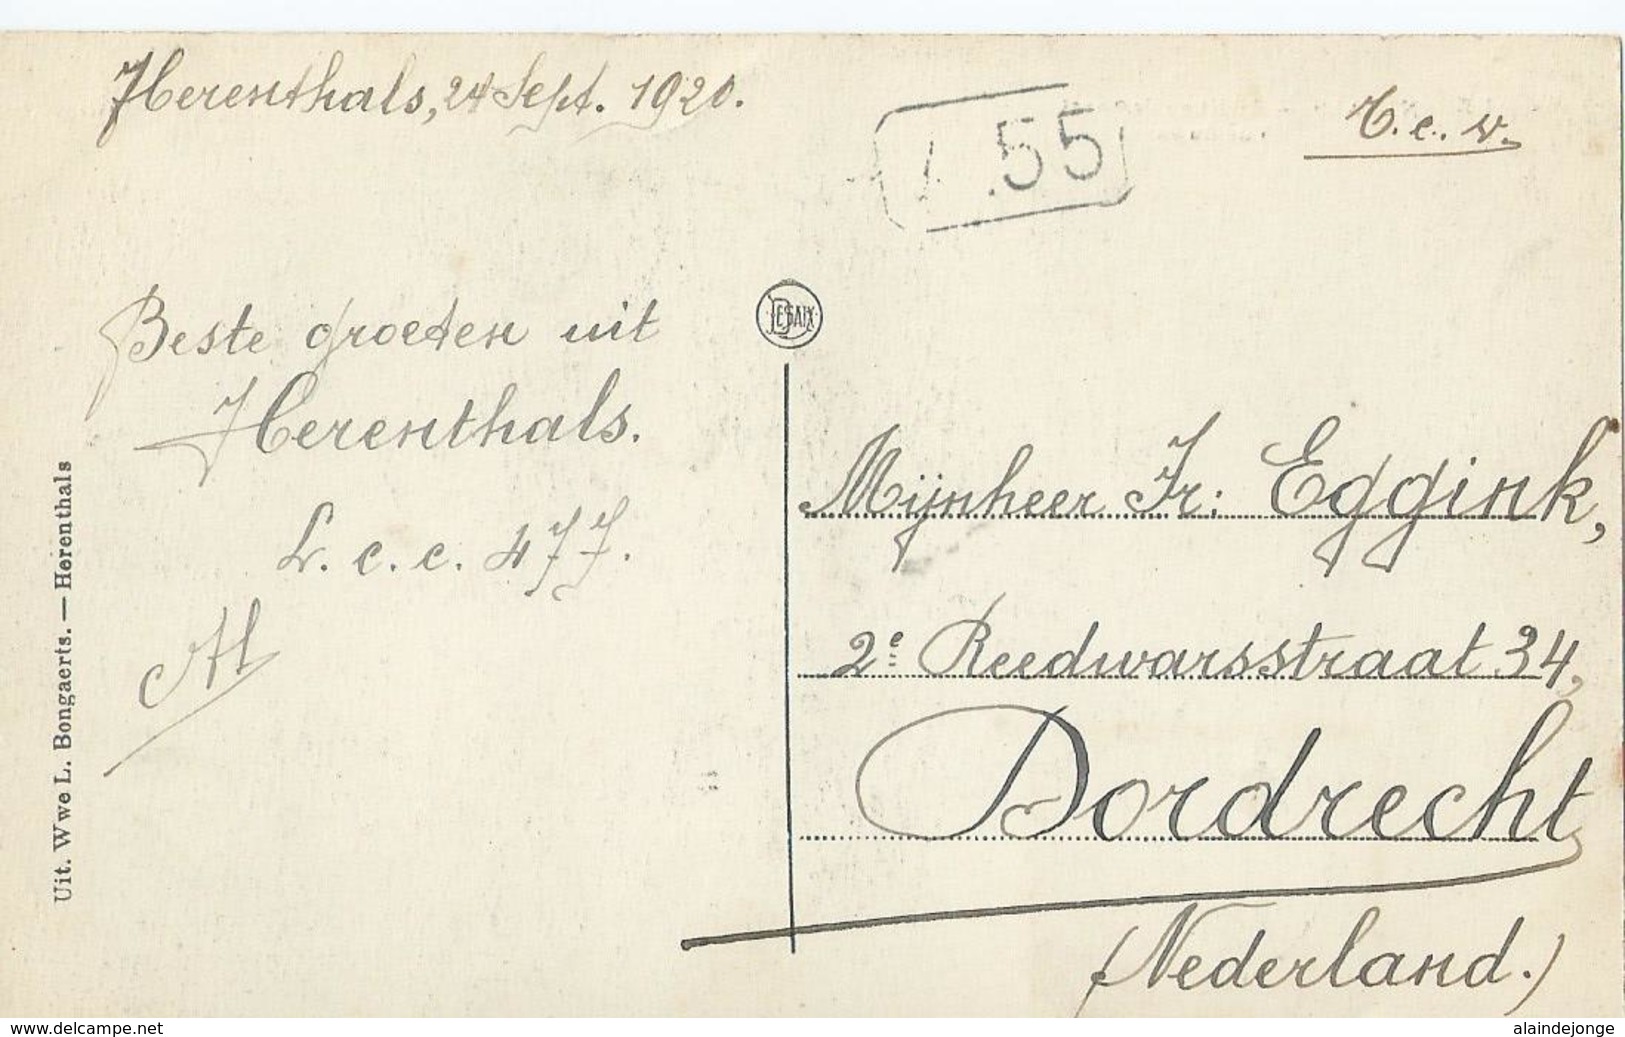 Herenthals, 24 Sept. 1920.
T.c.v.
1.55
Beste groeten uit
Herenthals.
L.c.c. 477.
AH
DESAIX
Mijnheer Fr: Eggink,
2e Reedwarsstraat 34,
Dordrecht
(Nederland.)
Uit. Wwe L. Bongaerts. — Herenthals
www.delcampe.net
alaindejonge